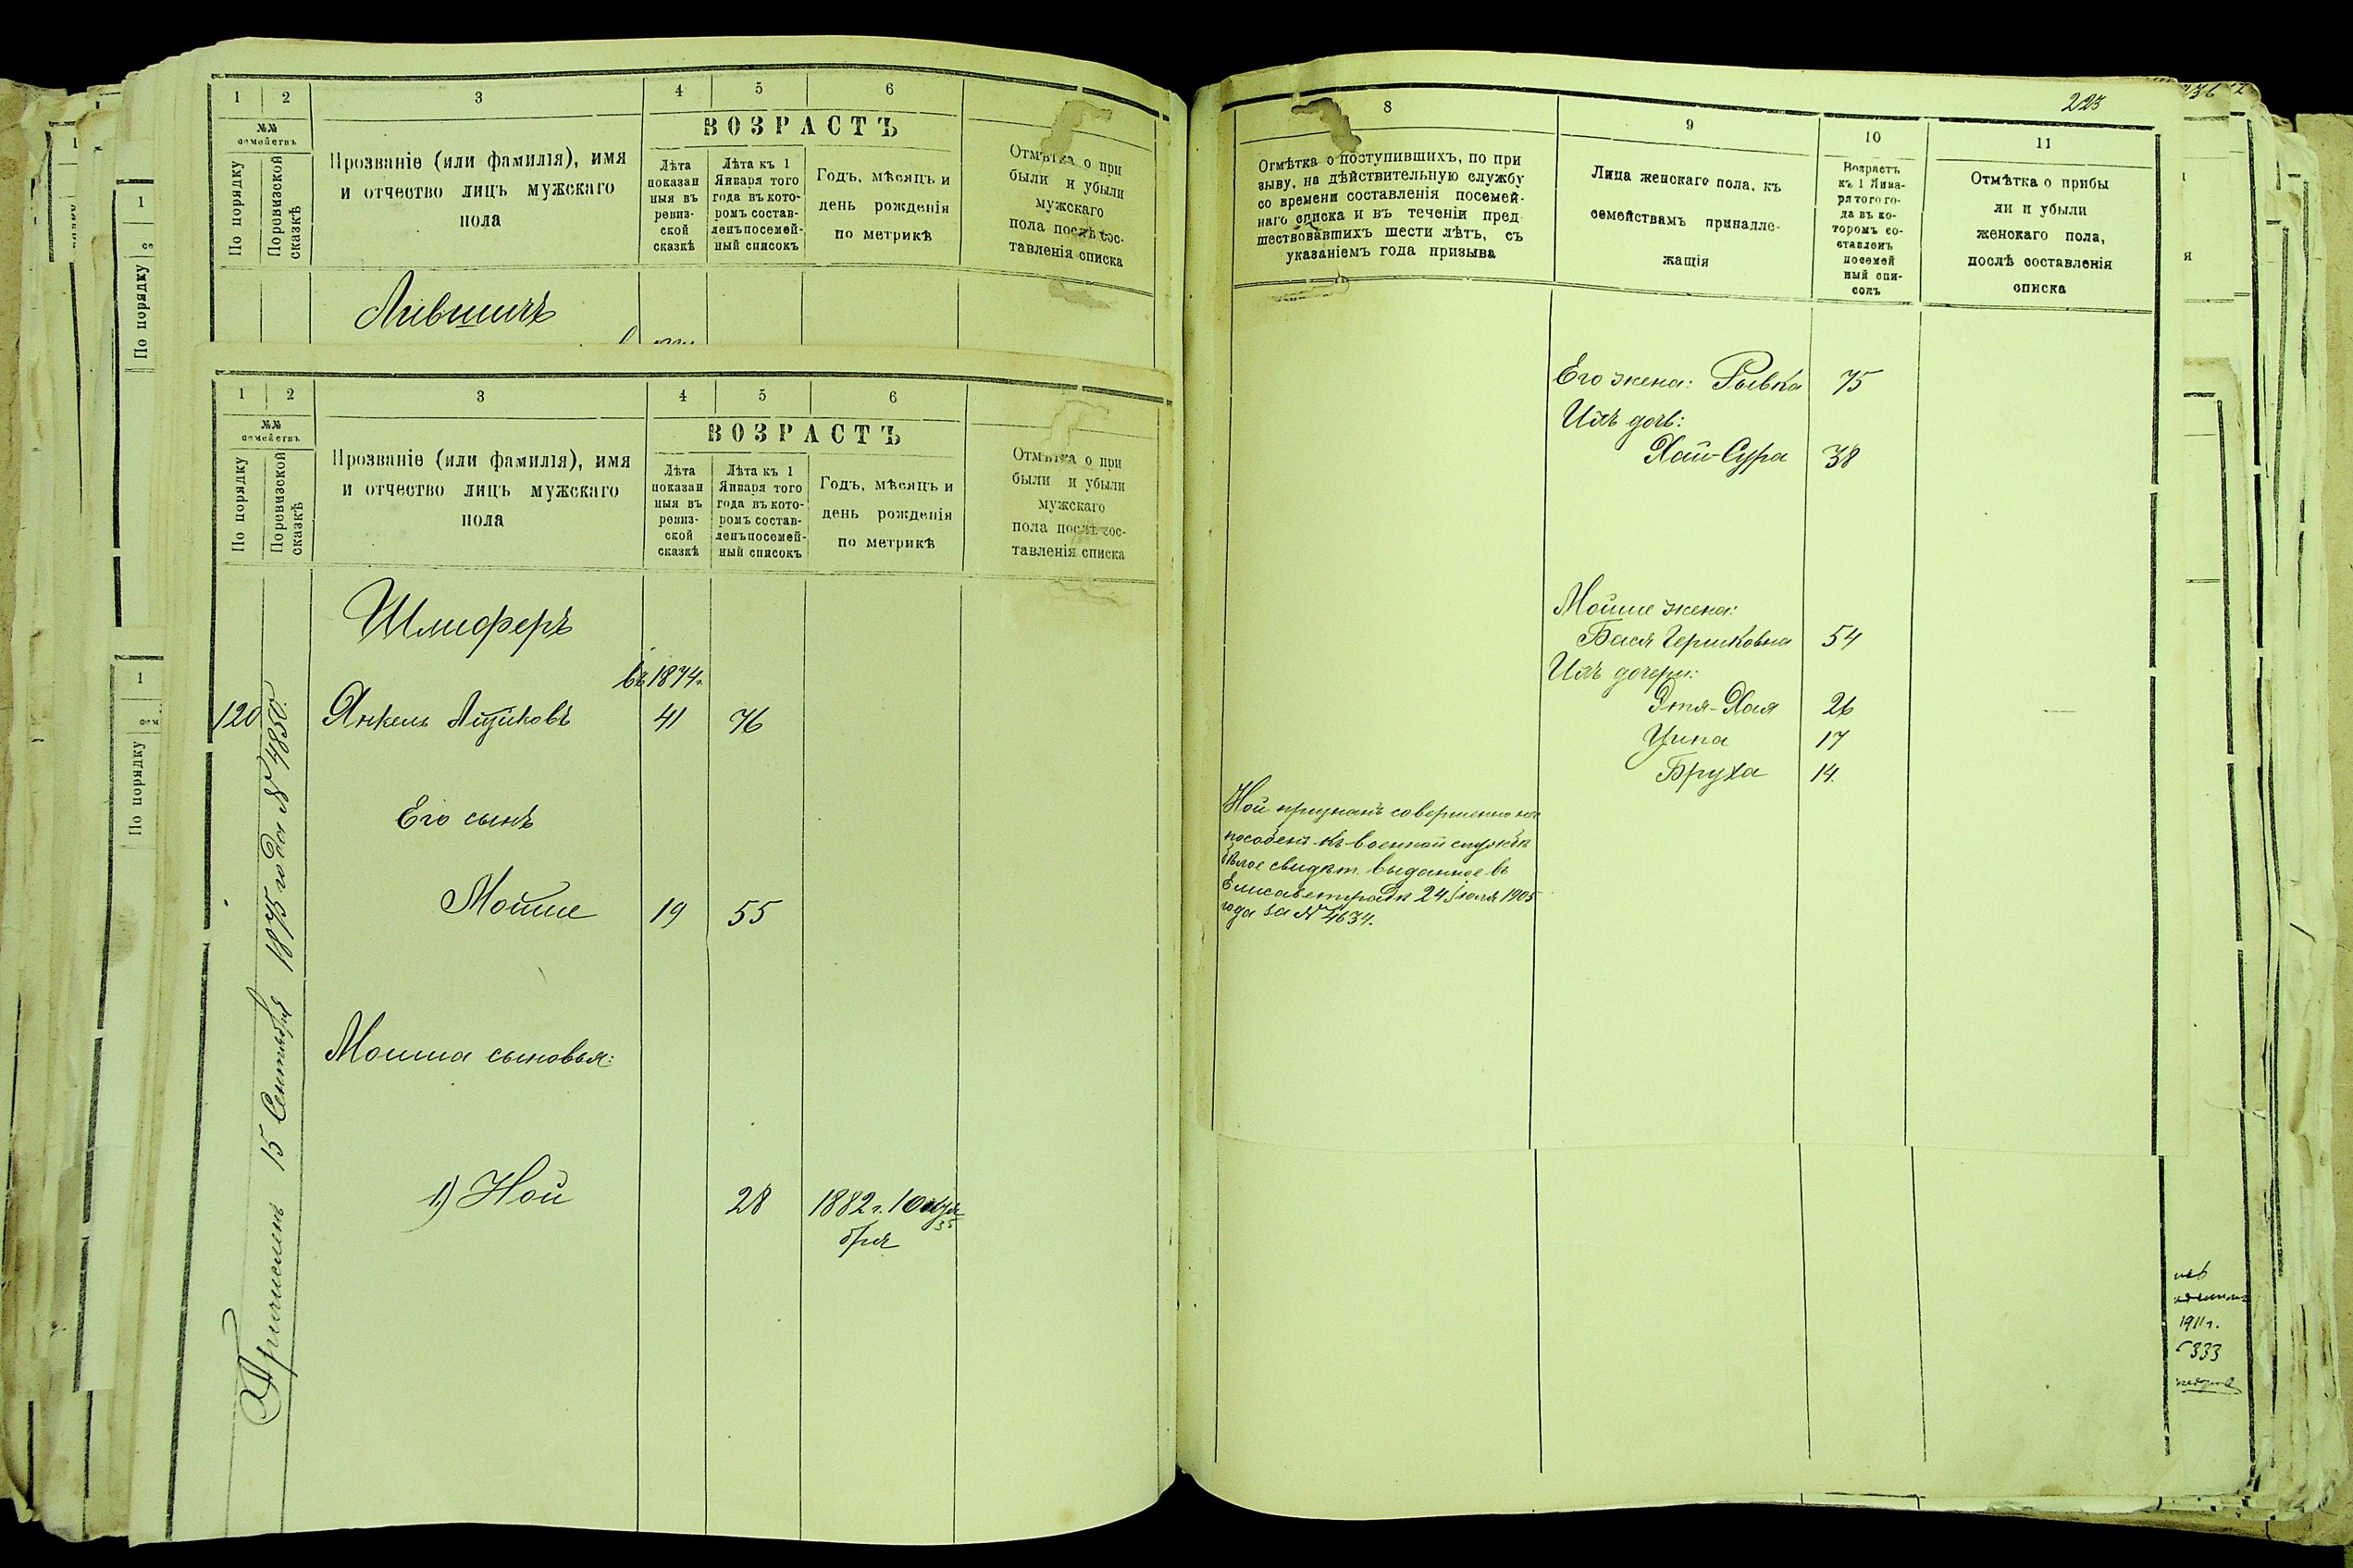 1
2
3
4
5
6
№№
семействъ
По порядку
Поревизской
сказкѣ
Прозваніе (или фамилія), имя
и отчество лицъ мужскаго
пола
ВОЗРАСТЪ
Лѣта
показан
ныя въ
ревиз-
ской
сказкѣ
Лѣта къ 1
Января того
года въ кото-
ромъ состав-
ленъ посемей-
ный списокъ
Годъ, мѣсяцъ и
день рожденія
по метрикѣ
Отмѣтка о при
были и убыли
мужскаго
пола послѣ сос-
тавленія списка
Лившицъ
1
2
3
4
5
6
№№
семействъ
По порядку
Поревизской
сказкѣ
Прозваніе (или фамилія), имя
и отчество лицъ мужскаго
пола
ВОЗРАСТЪ
Лѣта
показан
ныя въ
ревиз-
ской
сказкѣ
Лѣта къ 1
Января того
года въ кото-
ромъ состав-
ленъ посемей-
ный списокъ
Годъ, мѣсяцъ и
день рожденія
по метрикѣ
Отмѣтка о при
были и убыли
мужскаго
пола послѣ сос-
тавленія списка
Шлиферъ
въ 1874г.
120 Янкель Ицковъ 41 76
Причисленъ 15 Сентября 1875 года № 4850.
Его сынъ
Мойше 19 55
Мошка сыновья:
1) Ной 28 1882 г. 10
бря
223
8
9
10
11
Отмѣтка о поступившихъ, по при
зыву, на дѣйствительную службу
со времени составленія посемей-
наго списка и въ теченіи пред-
шествовавшихъ шести лѣтъ, съ
указаніемъ года призыва
Лица женскаго пола, къ
семействамъ принадле-
жащія
Возрастъ
къ 1 Янва-
ря того го-
да въ ко-
торомъ со-
ставленъ
посемей
ный спи-
сокъ
Отмѣтка о прибы
ли и убыли
женскаго пола,
послѣ составленія
списка
Его жена: Рывка 75
Ихъ дочь:
Хай-Сура 38
Мойше жена:
Бася Гершковна 54
Ихъ дочери:
Этя-Хая 26
Ципа 17
Бруха 14.
Ной признанъ совершенно нес
пособенъ къ военной службѣ
бѣлое свидѣт. выданное въ
Елисаветградѣ 24 Іюля 1905
года за № 4634.
1
По порядку
1
По порядку
1911 г.
333